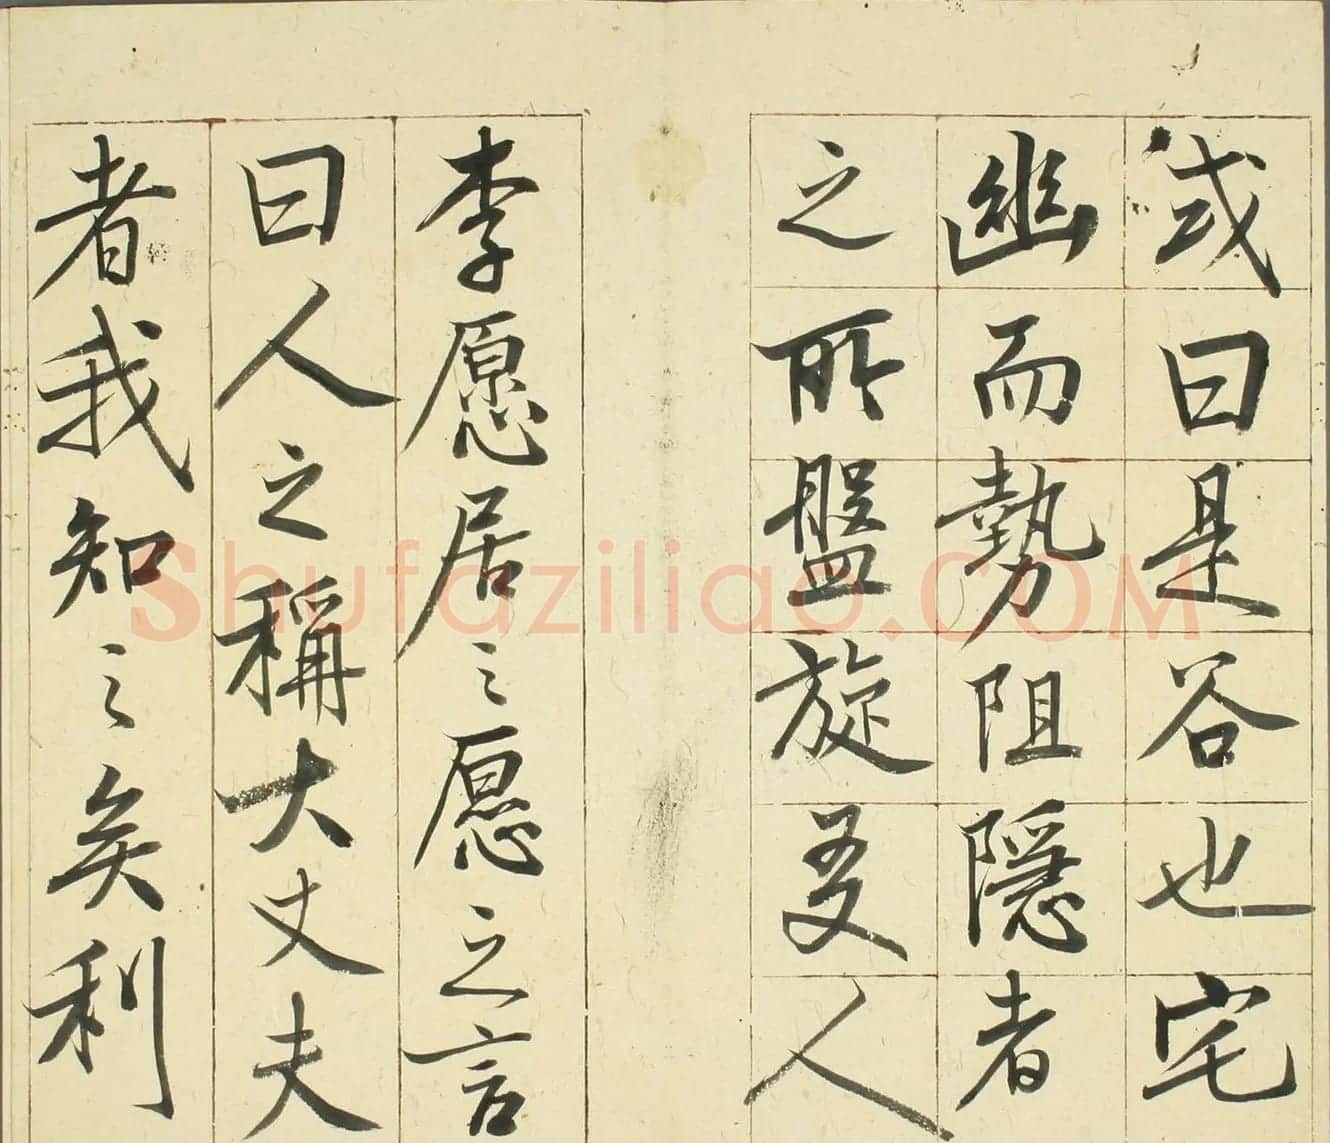 或曰是谷也宅
幽而勢阻隱者
之所盤旋友人
李愿居之愿之言
曰人之稱大丈夫
者我知之矣利
Shufaziliao.COM